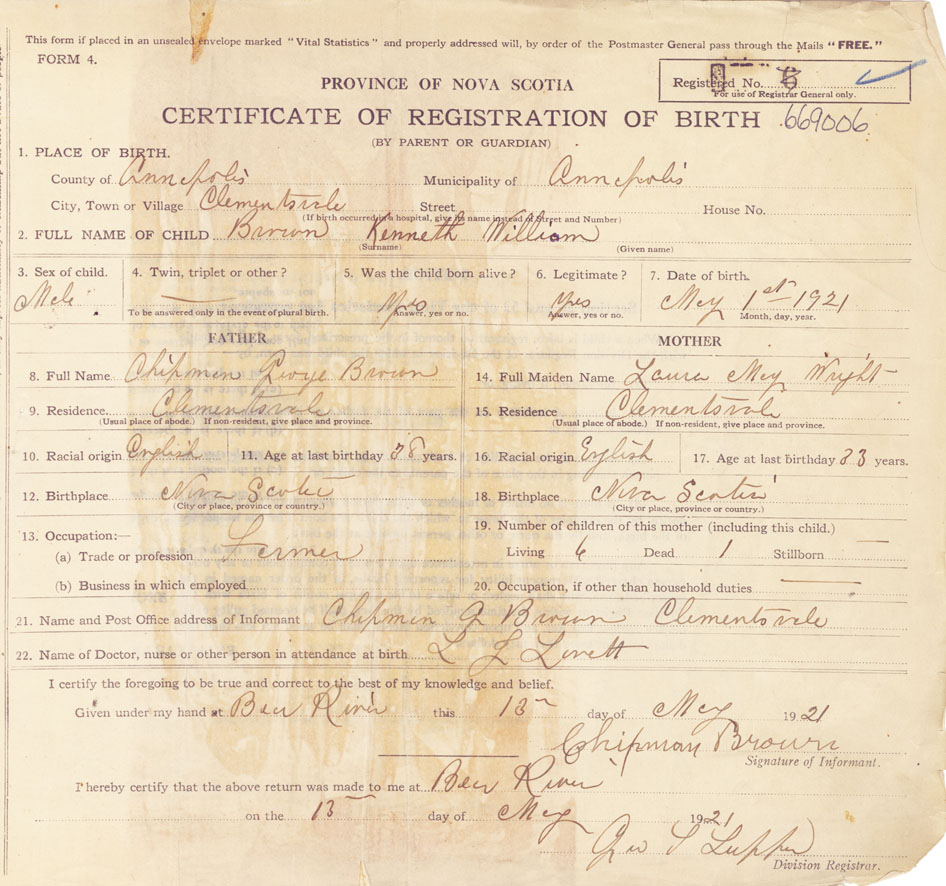 This form if placed in an unsealed envelope marked "Vital Statistics" and properly addressed will, by order of the Postmaster General pass through the Mails "FREE."
FORM 4.
Registered No.
For use of Registrar General only.
PROVINCE OF NOVA SCOTIA
CERTIFICATE OF REGISTRATION OF BIRTH 669006
(BY PARENT OR GUARDIAN)
1. PLACE OF BIRTH.
County of Annapolis Municipality of Annapolis
City, Town or Village Clementsvale Street House No.
(If birth occurred in a hospital, give its name instead of Street and Number)
2. FULL NAME OF CHILD Brown Kenneth William
(Surname) (Given name)
3. Sex of child. 4. Twin, triplet or other? 5. Was the child born alive? 6. Legitimate? 7. Date of birth.
Male — Yes Yes May 1st 1921
To be answered only in the event of plural birth. Answer, yes or no. Answer, yes or no. Month, day, year.
FATHER MOTHER
8. Full Name Chipman George Brown 14. Full Maiden Name Laura May Wright
9. Residence Clementsvale 15. Residence Clementsvale
(Usual place of abode.) If non-resident, give place and province. (Usual place of abode.) If non-resident, give place and province.
10. Racial origin English 11. Age at last birthday 38 years. 16. Racial origin English 17. Age at last birthday 33 years.
12. Birthplace Nova Scotia 18. Birthplace Nova Scotia
(City or place, province or country.) (City or place, province or country.)
13. Occupation:— 19. Number of children of this mother (including this child.)
(a) Trade or profession Farmer Living 6 Dead 1 Stillborn —
(b) Business in which employed 20. Occupation, if other than household duties —
21. Name and Post Office address of Informant Chipman G Brown Clementsvale
22. Name of Doctor, nurse or other person in attendance at birth L J Lovett
I certify the foregoing to be true and correct to the best of my knowledge and belief.
Given under my hand at Bear River this 13 day of May 1921
Chipman Brown
Signature of Informant.
I hereby certify that the above return was made to me at Bear River
on the 13 day of May 1921
Geo
Division Registrar.